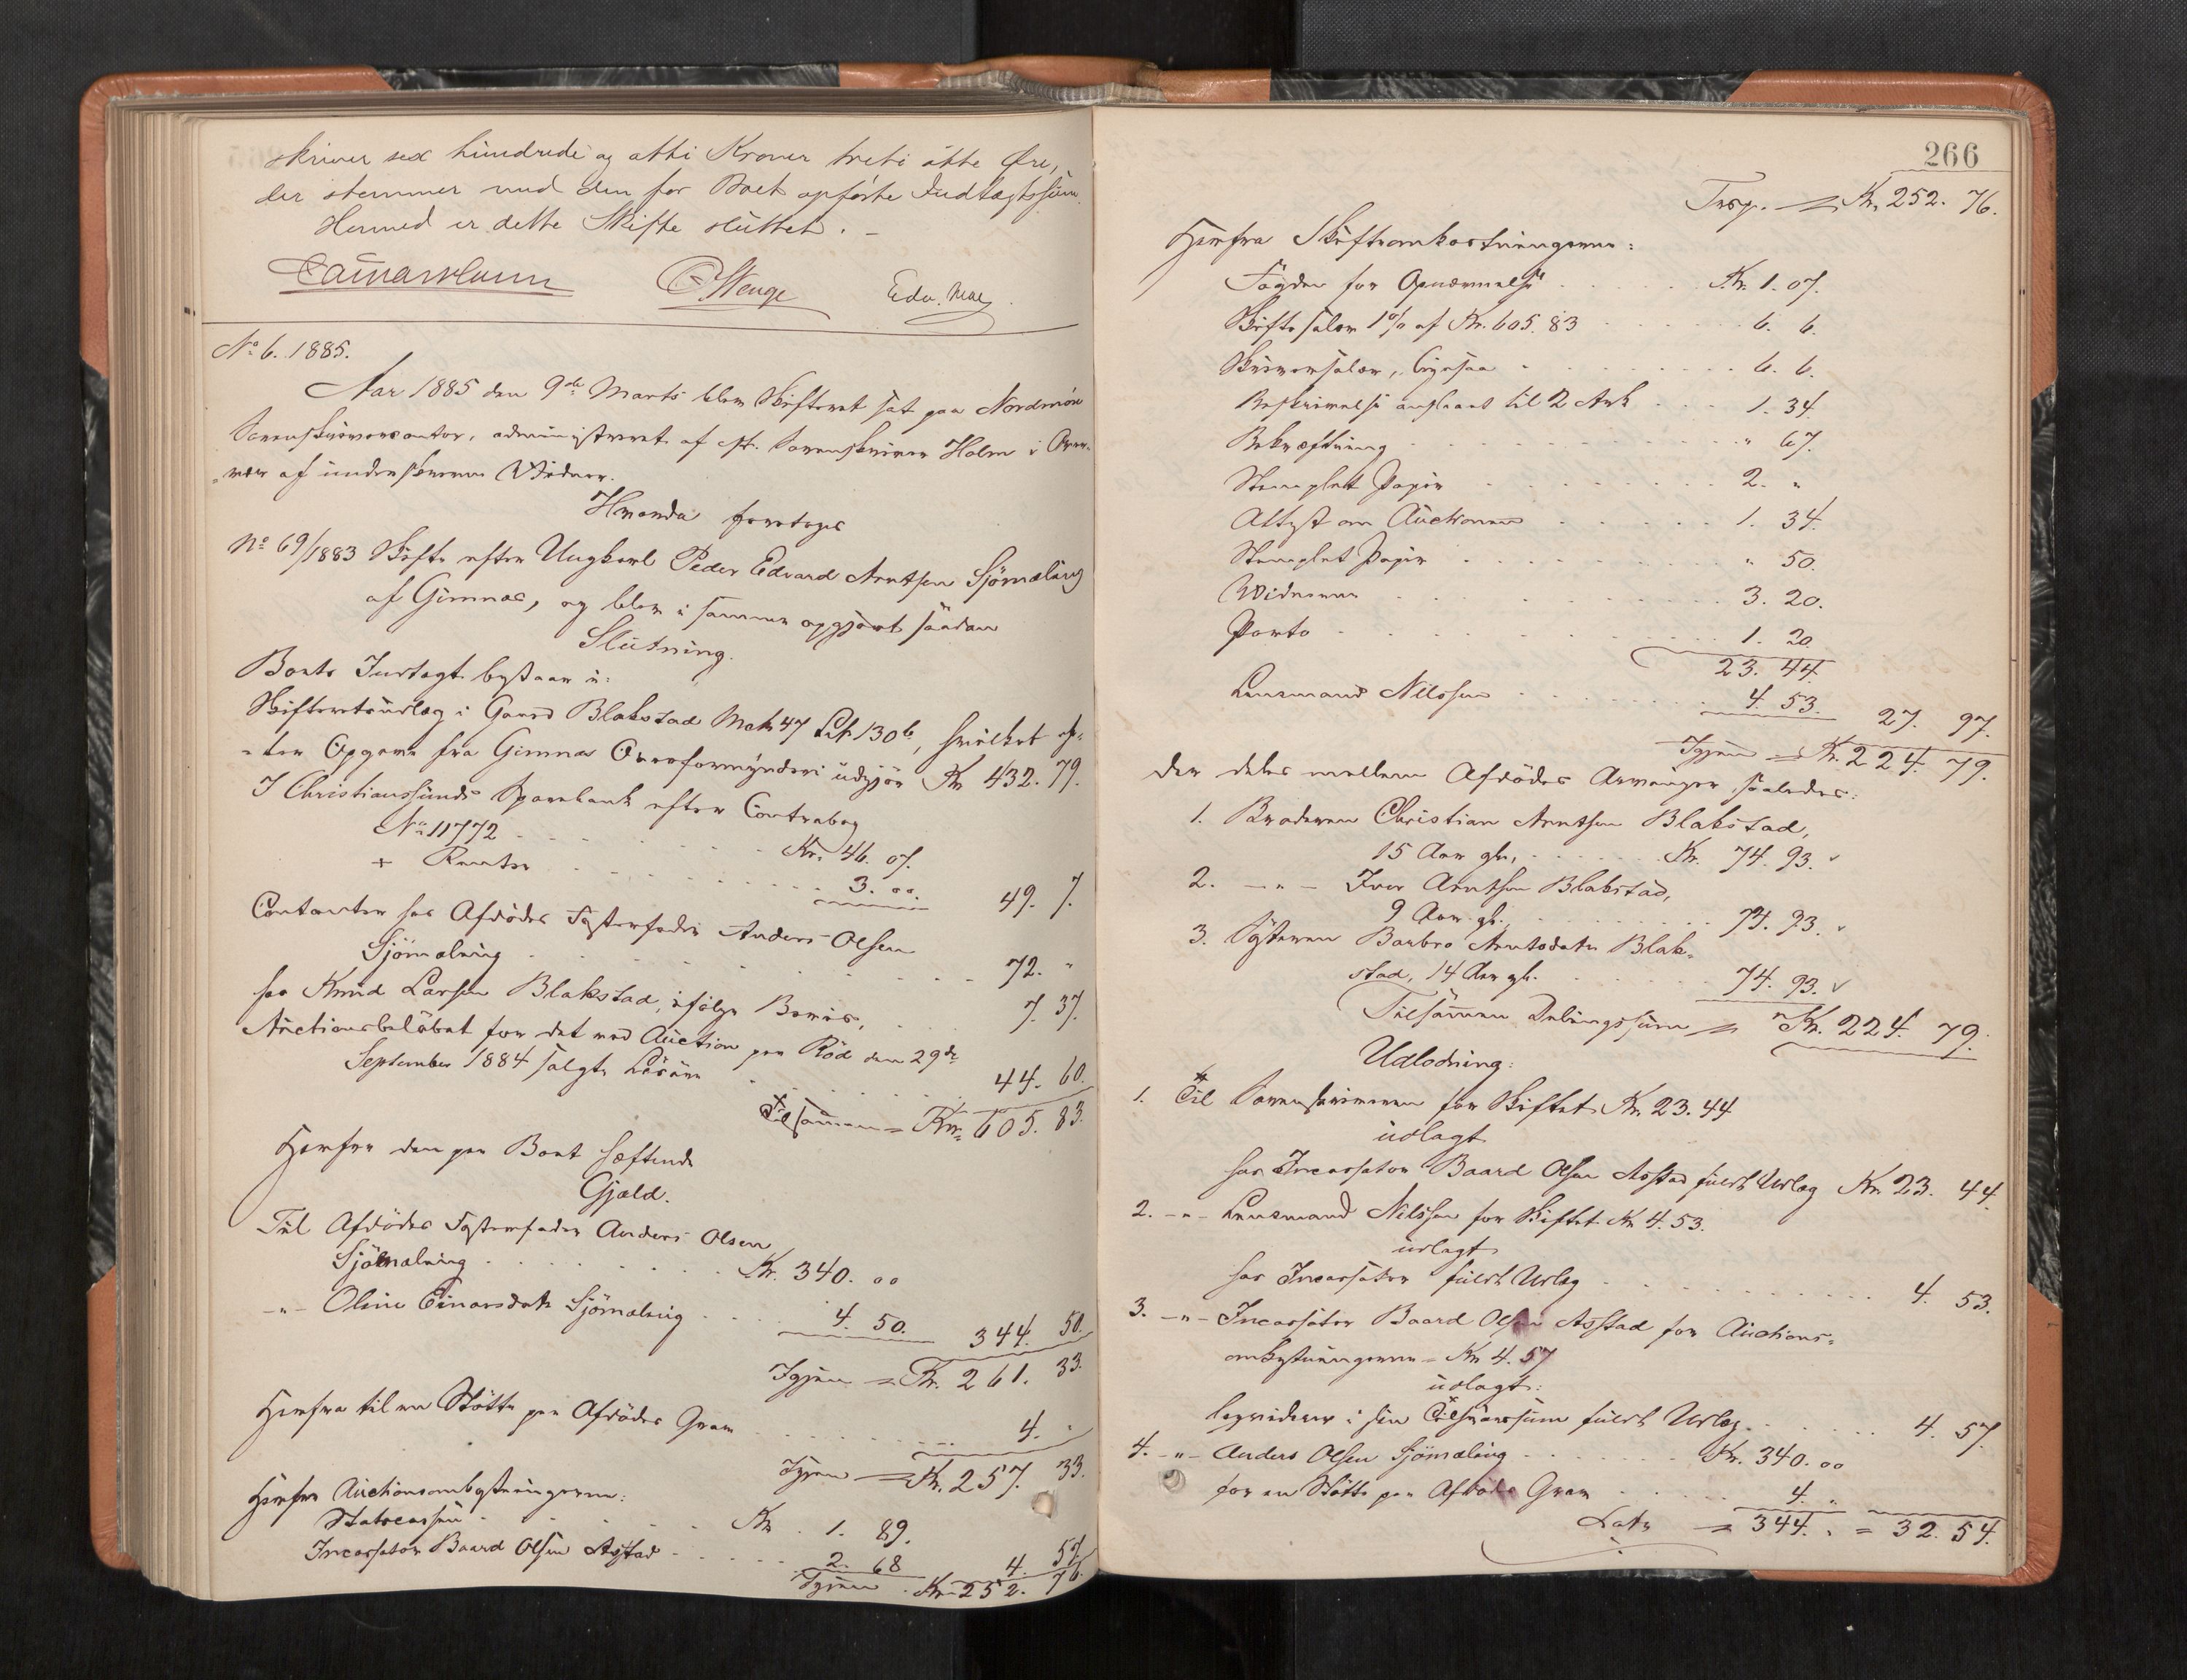 skriver sex hundrede og atti Kroner treti åtte Øre,
der stemmer med den for Boet opførte Indtægtssum.
Hermed er dette Skifte sluttet. –
C Stenge Edv. Moe
No 6. 1885.
Aar 1885 den 9de Marts blev Skifteret sat paa Nordmøre
Sorenskriverkontor, administreret af cst. Sorenskriver Holm i Over-
-vær af underskrevne Vidner.
Hvorda foretoges
No 69/1883 Skifte efter Ungkarl Peder Edvard Arntsen Sjömæling
af Gimnæs, og blev i samme opgjort saadan
Slutning.
Boets Indtægt bestaar i:
Skifteretsudlæg i Gaard Blakstad Matr 47 Lit 130b, hvilket ef-
-ter Opgave fra Gimnæs Overformynderi udgjör Kr 432. 79.
I Christianssunds Sparebank efter Contrabog
No 11772 . . . Kr. 46. 07.
+ Renter . . . 3. 00. 49. 7.
Contanter hos Afdödes Fosterfader Anders Olsen
Sjömæling . . . 72. "
hos Knud Larsen Blakstad, ifölge Bevis, . . 7. 37.
Auctionsbelöbet for det ved Auction paa Röd den 29de
September 1884 solgte Lösöre . . . 44. 60.
Tilsammen = Kr. 605. 83.
Herfra den paa Boet hæftende
Gjæld.
Til Afdödes Fosterfader Anders Olsen
Sjömælning . . . Kr. 340. 00
-"- Oline Einarsdatr Sjömæling . . . 4. 50. 344. 50.
Igjen = Kr. 261. 33.
Herfra til en Stötte paa Afdödes Grav . . . 4. "
Igjen = Kr. 257. 33.
Herfra Auctionsomkostningerne:
Statscassen . . . Kr. 1. 89.
Incassator Baard Olsen Aasstad . . . 2. 68 4. 57.
Igjen . Kr. 252. 76.
266
Trsp. = Kr. 252. 76.
Herfra Skifteomkostningerne:
Fogden for Opnævnelse . . . Kr. 1. 07.
Skiftesalær 1% af Kr. 605. 83 . . . 6. 6.
Skriversalær, ligesaa . . . 6. 6.
Beskrivelse anslaaet til 2 Ark . . . 1. 34.
Bekræftning . . . " 67.
Stemplet Papir . . . 2. "
Attest om Auctionen . . . 1. 34.
Stemplet Papir . . . " 50.
Vidnerne . . . 3. 20.
Porto . . . 1. 20.
23. 44.
Lensmand Nilssen . . . 4. 53. 27. 97.
Igjen = Kr. 224. 79.
der deles mellem Afdödes Arvinger saaledes:
1. Broderen Christian Arntsen Blakstad,
15 Aar gl., . . . Kr. 74. 93. ✓
2. -"- Iver Arntsen Blakstad,
9 Aar gl., . . . 74. 93. ✓
3. Systeren Barbro Arntsdatr Blak-
stad, 14 Aar gl. . . . 74. 93. ✓
Tilsammen Delingssum = Kr. 224. 79.
Udlodning:
1. Til Sorenskriveren for Skiftet Kr. 23. 44
udlagt
hos Incassator Baard Olsen Aasstad fuldt Udlæg Kr. 23. 44.
2. -"- Lensmand Nilssen for Skiftet Kr. 4. 53.
udlagt
hos Incassator fuldt Udlæg . . . 4. 53.
3. -"- Incassator Baard Olsen Aasstad for Auctions-
omkostningerne = Kr 4. 57
udlagt:
beholder i sin Tilsvarssum fuldt Udlæg . . . 4. 57.
4. -"- Anders Olsen Sjömæling . . . Kr. 340. 00
for en Stötte paa Afdödes Grav . . . 4. "
Latr = 344. " = 32. 54.